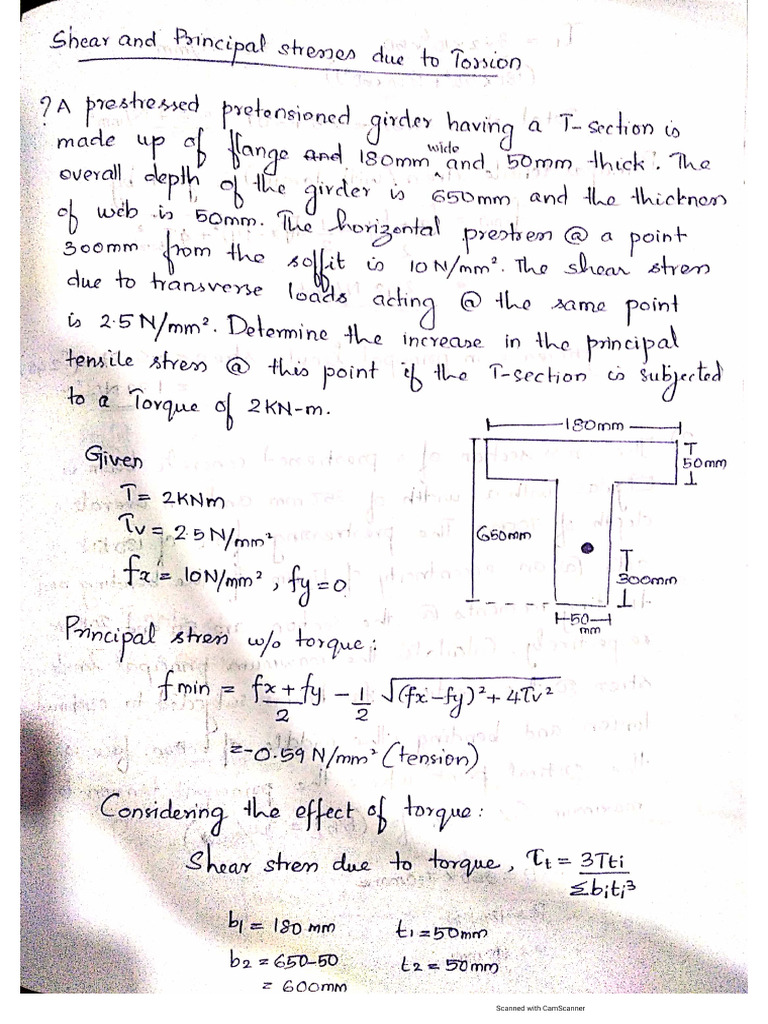 Shear and Principal stresses due to Torsion
? A prestressed pretensioned girder having a T-section is
made up of flange and 180mm wide and 50mm thick. The
overall depth of the girder is 650mm and the thickness
of web is 50mm. The horizontal prestress @ a point
300mm from the soffit is 10N/mm². The shear stress
due to transverse loads acting @ the same point
is 2.5N/mm². Determine the increase in the principal
tensile stress @ this point if the T-section is subjected
to a Torque of 2KN-m.
180mm
50mm
650mm
300mm
50
mm
Given
T = 2KNm
τv = 2.5N/mm²
fx = 10N/mm², fy = 0
Principal stress w/o torque:
fmin = fx + fy / 2 - 1/2 √(fx-fy)² + 4τv²
= -0.59 N/mm² (tension)
Considering the effect of torque:
Shear stress due to torque, τt = 3Tti / Σbiti³
b1 = 180mm t1 = 50mm
b2 = 650-50 t2 = 50mm
= 600mm
Scanned with CamScanner